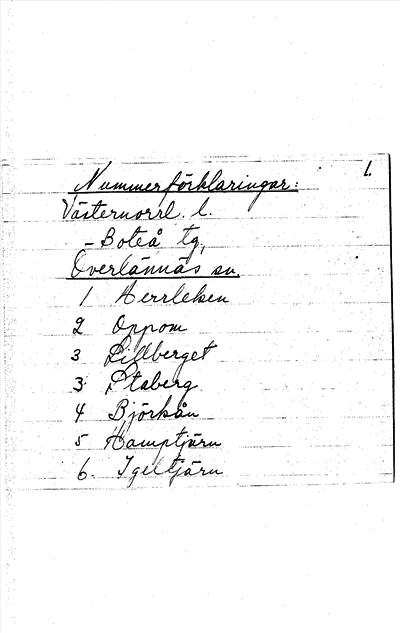 1.
Nummerförklaringar:
Västernorrl. l.
- Boteå tg,
Överlännäs sn.
1 Herrleken
2 Oppom
3 Lillberget
3 Staberg
4 Björkån
5 Hamptjärn
6. Igeltjärn